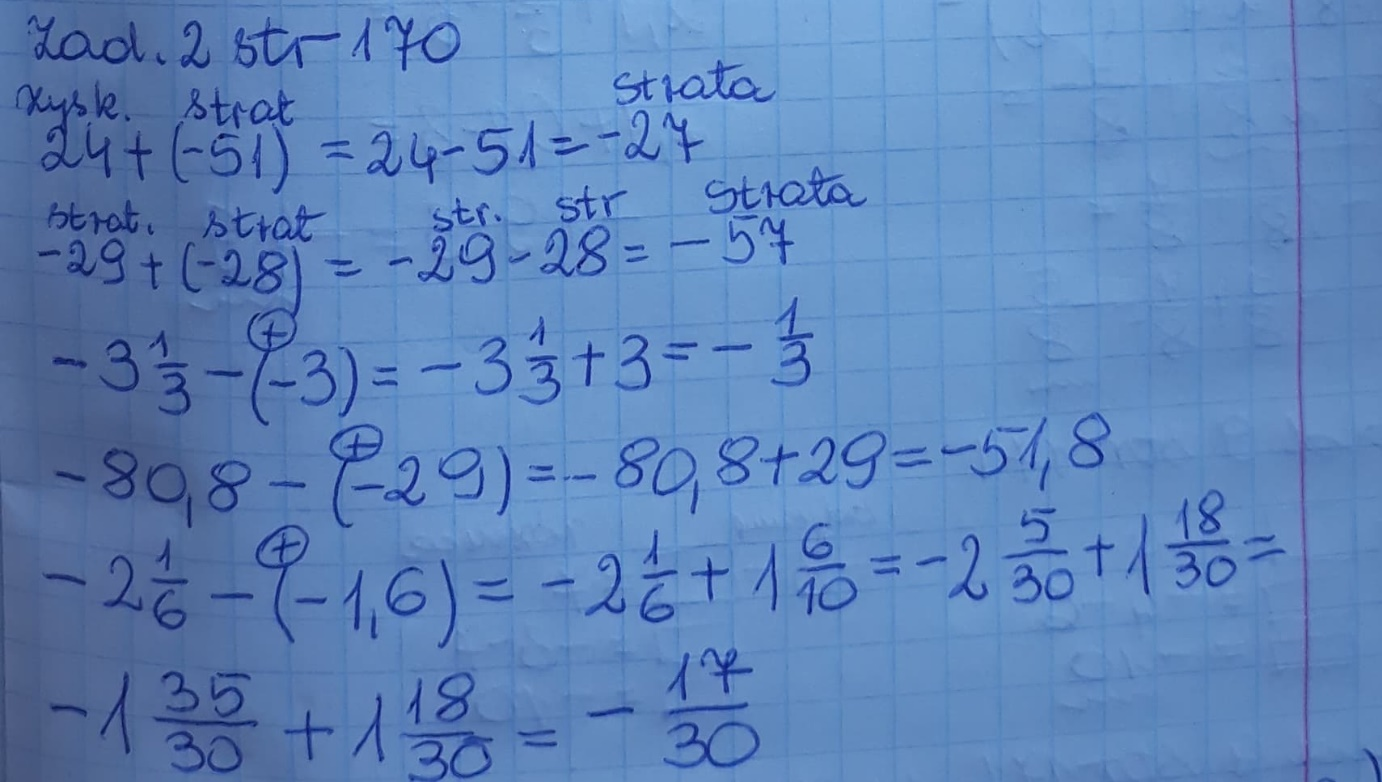 Zad. 2 str 170
zysk. strat strata
24 + (-51) = 24 - 51 = -27
strat. strat str. str strata
-29 + (-28) = -29 - 28 = -57
+
-3 1/3 - (-3) = -3 1/3 + 3 = - 1/3
+
-80,8 - (-29) = -80,8 + 29 = -51,8
+
-2 1/6 - (-1,6) = -2 1/6 + 1 6/10 = -2 5/30 + 1 18/30 =
-1 35/30 + 1 18/30 = - 17/30